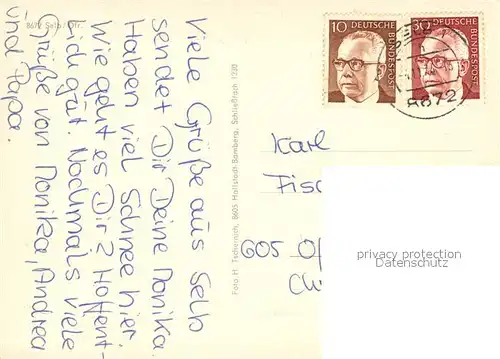 8672 Selb/Ofr.
Viele Grüße aus Selb
sendet Dir Deine Monika.
Haben viel Schnee hier.
Wie geht es Dir? Hoffent-
lich gut. Nochmals viele
Grüße von Monika, Andrea
und Papa.
Foto H. Tschernich, 8605 Hallstadt-Bamberg, Schließfach 1220
10 DEUTSCHE BUNDESPOST
30 DEUTSCHE BUNDESPOST
8672
Karl
Fisc
605 Of
privacy protection
Datenschutz